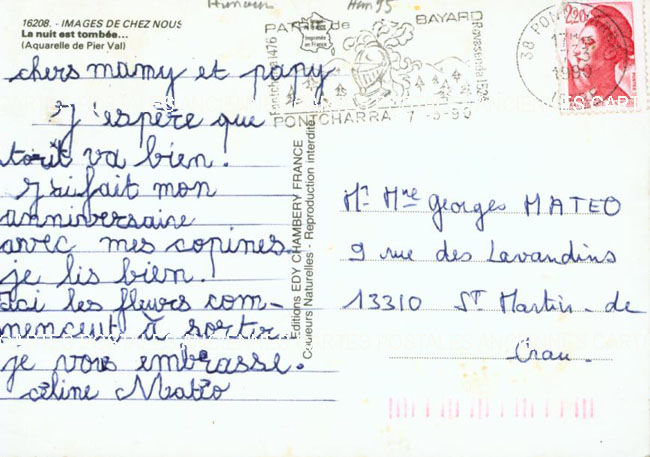 16208. - IMAGES DE CHEZ NOUS
La nuit est tombée...
(Aquarelle de Pier Val)
chers mamy et papy
J'espère que
tout va bien.
J'ai fait mon
anniversaire
avec mes copines.
je lis bien.
ici les fleurs com-
mencent à sortir.
je vous embrasse.
céline Matéo
Editions EDY CHAMBERY FRANCE
Couleurs Naturelles - Reproduction interdite
Imprimée en France
PATRIE de BAYARD
Pontcharra 1476
Rovasenda 1524
PONTCHARRA 7-3-90
38 PONTCHARRA
17H
1990
2,20
Mr Mme Georges MATEO
9 rue des Lavandins
13310 ST Martin-de
Crau.
CARTES POSTALES ANCIENNES